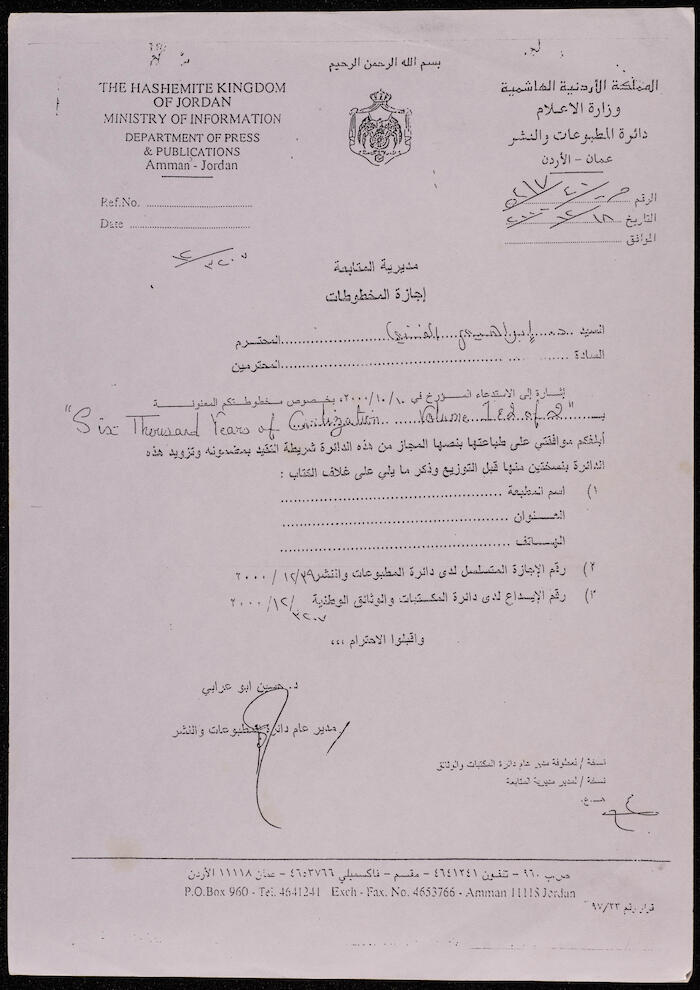 بسم الله الرحمن الرحيم
THE HASHEMITE KINGDOM
OF JORDAN
MINISTRY OF INFORMATION
DEPARTMENT OF PRESS
& PUBLICATIONS
Amman - Jordan
Ref.No. ..............................
Date ..............................
المملكة الأردنية الهاشمية
وزارة الاعلام
دائرة المطبوعات والنشر
عمان - الأردن
الرقم
التاريخ ١٨/١٢/٢٠٠٠
الموافق ..............................
مديرية المتابعة
إجازة المخطوطات
السيد د. إبراهيم المحترم
السادة المحترمين
إشارة إلى الاستدعاء المؤرخ في ١٠/١٠/٢٠٠٠، بخصوص مخطوطتكم المعنونة
بـ "Six Thousand Years of Civilization Volume 1 Ed of 2"
أبلغكم موافقتي على طباعتها بنصها المجاز من هذه الدائرة شريطة التقيد بمضمونه وتزويد هذه
الدائرة بنسختين منها قبل التوزيع وذكر ما يلي على غلاف الكتاب :
١) اسم المطبعة ..............................
العنوان ..............................
الهاتف ..............................
٢) رقم الإجازة المتسلسل لدى دائرة المطبوعات والنشر ٢٠٠٠/١٢/
٣) رقم الإيداع لدى دائرة المكتبات والوثائق الوطنية ٢٠٠٠/١٢/
٣٢٠٧
واقبلوا الاحترام ،،،
د. حسين ابو عرابي
مدير عام دائرة المطبوعات والنشر
نسخة / لعطوفة مدير عام دائرة المكتبات والوثائق
نسخة / لمدير مديرية المتابعة
ص.ب ٩٦٠ - تلفون ٤٦٤١٢٤١ - مقسم - فاكسميلي ٤٦٥٣٧٦٦ - عمان ١١١١٨ الأردن
P.O.Box 960 - Tel. 4641241 Exch - Fax. No. 4653766 - Amman 11118 Jordan
قرار رقم ٩٧/٢٣